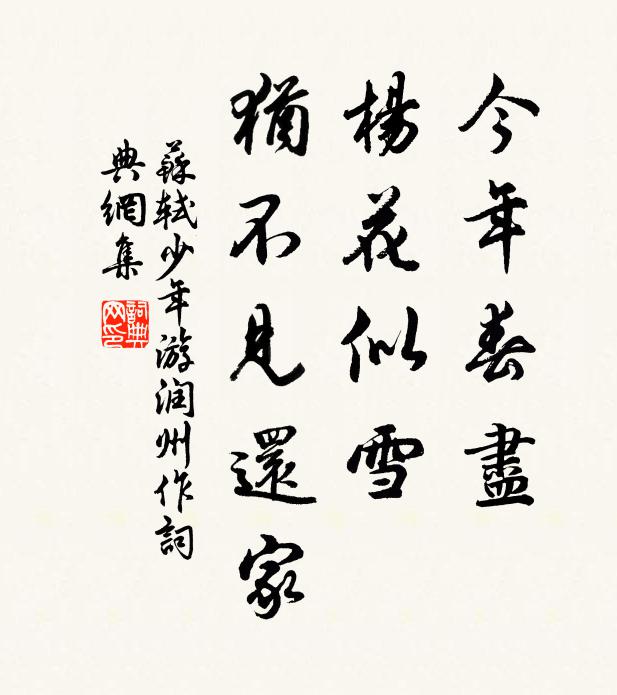 今年春盡
楊花似雪
猶不見還家
蘇軾少年游润州作詞
典網集
詞典
网印